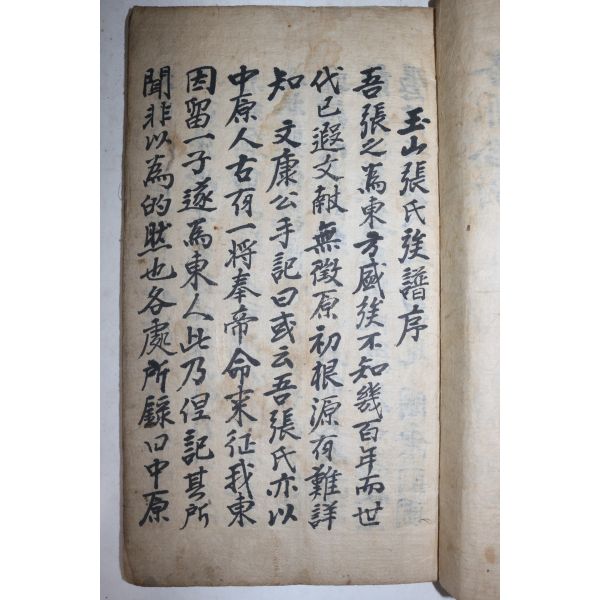 玉山張氏族譜序
吾張之爲東方盛族不知幾百年而世
代已遐文献無徵原初根源有難詳
知 文康公手記曰或云吾張氏亦以
中原人古有一将奉帝命来征我東
因留一子遂爲東人此乃但記其所
聞非以為的然也各處所錄曰中原